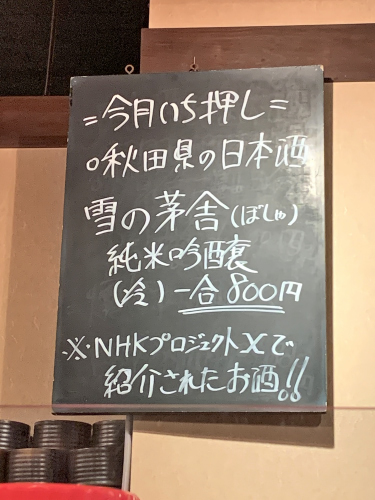 =今月いち押し=
○秋田県の日本酒
雪の茅舎(ぼしゅ)
純米吟醸
(冷)一合800円
※NHKプロジェクトXで
紹介されたお酒!!